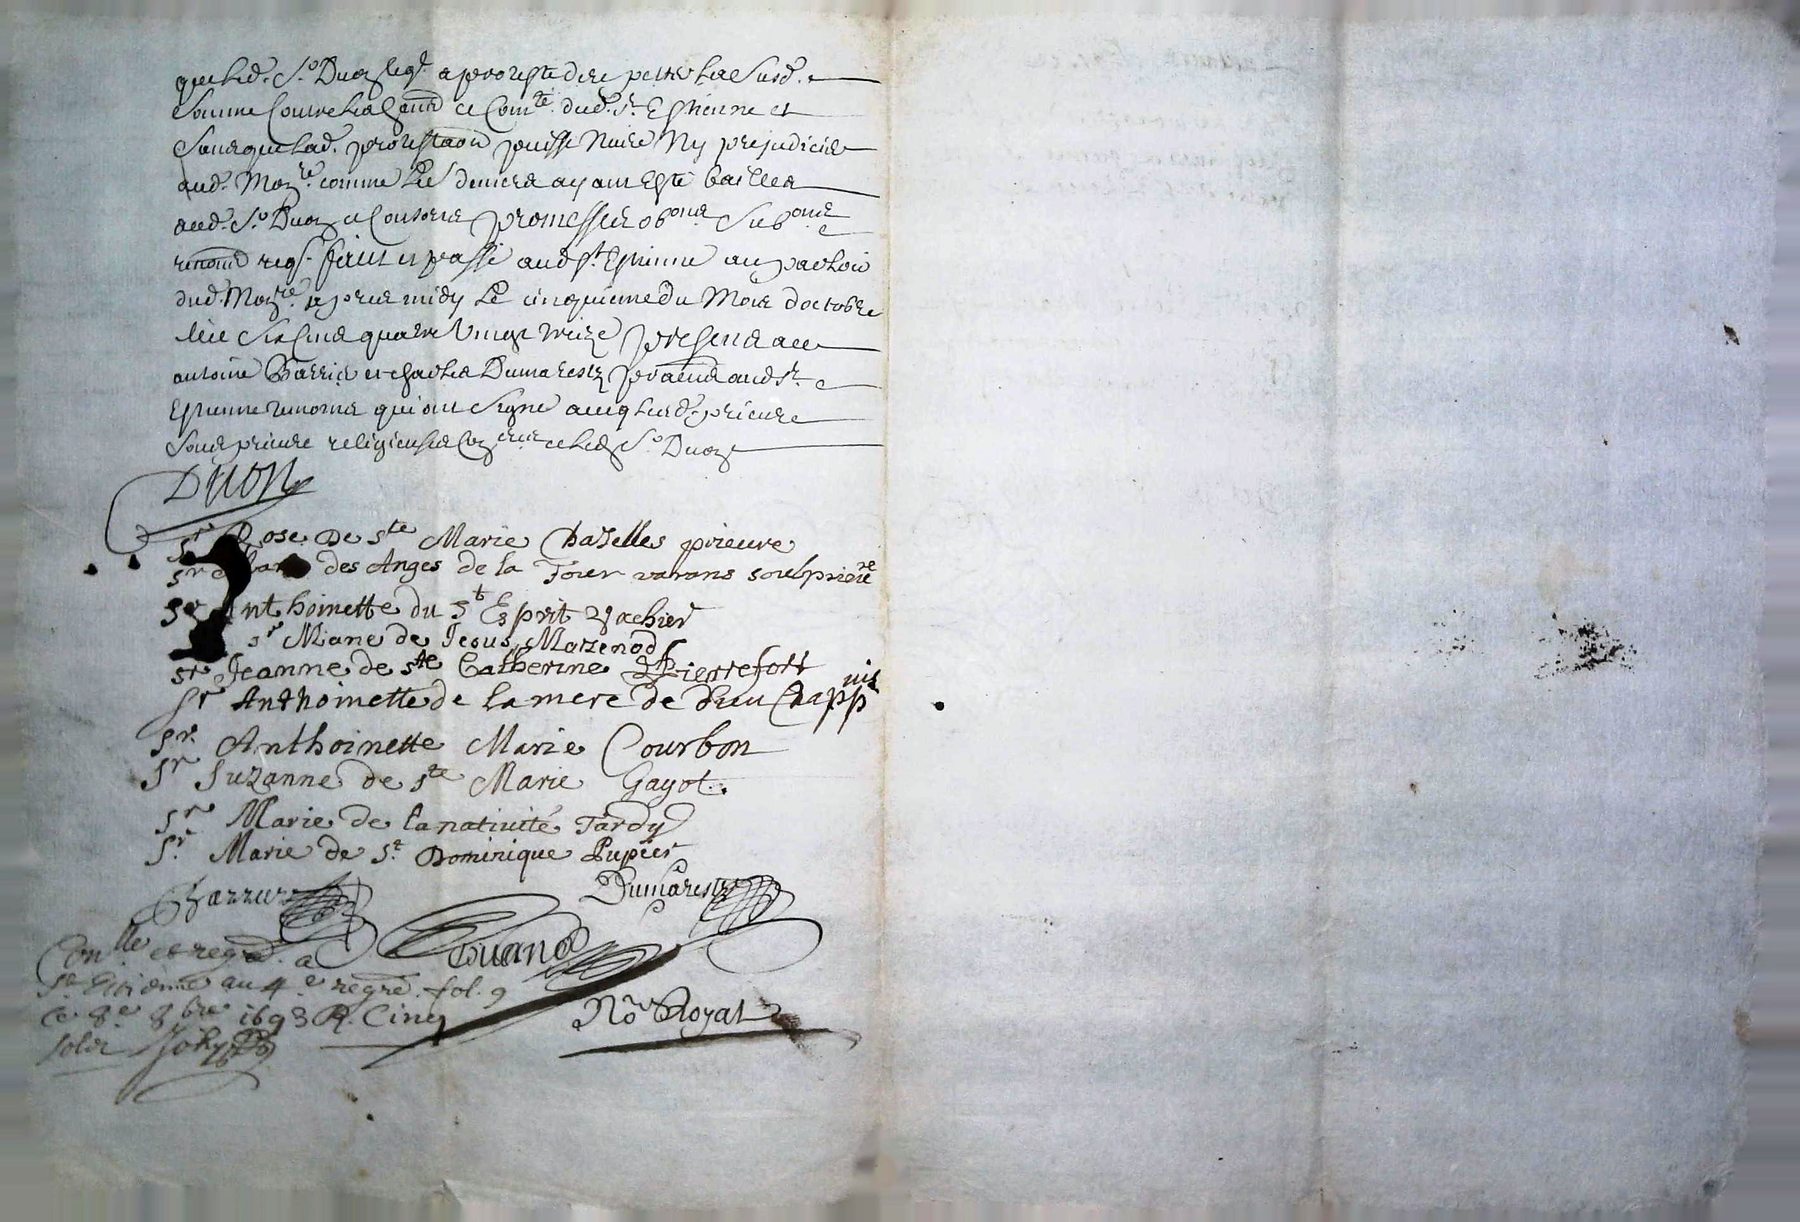 que led. Sr Duon leql a proteste de repetter la susd.
somme contre les gand et Comte dud. St Estienne et
sans que lad. protestaon puisse nuire ny prejudicier
aud. Monre comme les deniers ayant esté bailles
aud. Sr Duon et Consors promesses obons Subons et
renons reqs fait et passé aud St Estienne au parloir
dud. Monre apres midy Le cinquieme du Mois doctobre
Mil six cens quatre vingt treize presens a ce
antoine et charles Dumarestz pratiens aud St
Estienne temoins qui ont signe avecq lesd. prieure
sous prieure religieuses et led Sr Duon
Duon
Sr Rose De Ste Marie Chazelles prieure
Sr des Anges de la Tour varans soubprieure
Sr Anthoinette du St Esprit Vachier
Sr Marie de Jesus Mazenod
Sr Jeanne de Ste Catherine Pierrefort
Sr Anthoinette de la mere de Dieu Chappuis
Sr Anthoinette Marie Courbon
Sr Suzanne de Ste Marie Gayot
Sr Marie de la nativité Tardy
Sr Marie de St Dominique Pupier
Dumarestz
Conlle et regré. a
St Etienne au 4e regre. fol. 9
Ce 8e 8bre 1693 R. Cinq
solz
No Royal